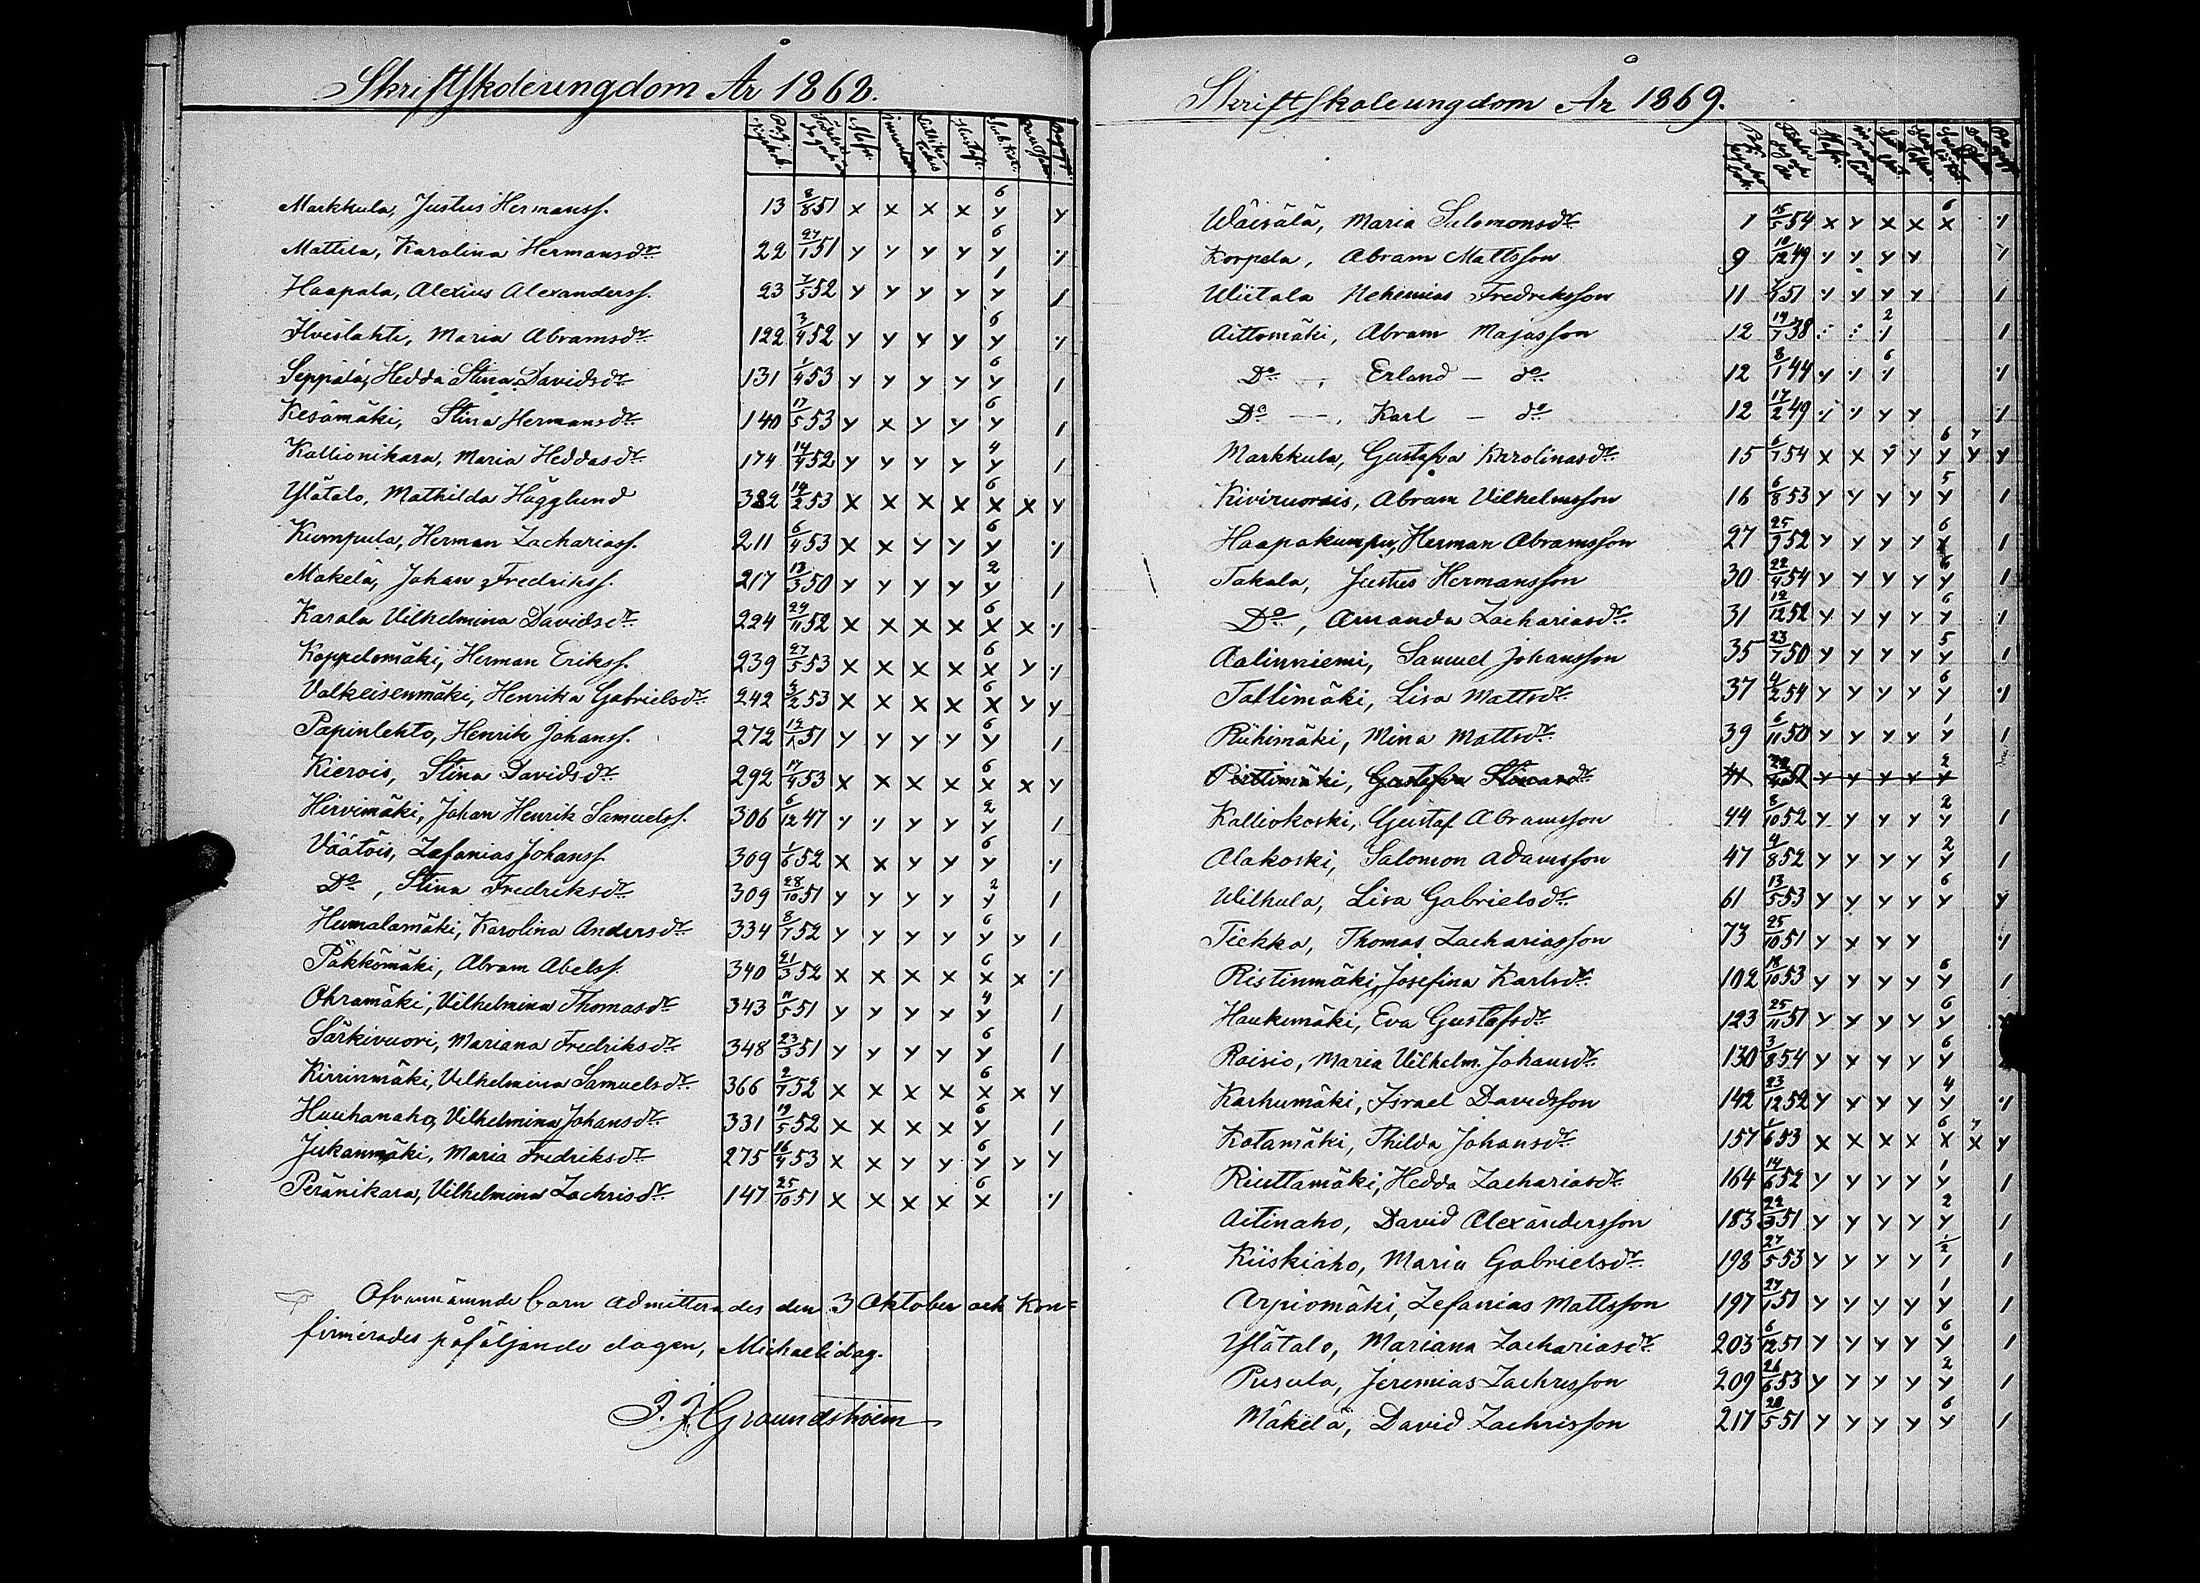 Skriftskoleungdom År 1868.
Markkula, Justus Hermanss. 13 8/8 51 x x x x 6 y y
Mattila, Karolina Hermansdr. 22 27/1 51 y y y y 6 y ⁒
Haapala, Alexius Alexanderss. 23 7/5 52 y y y y 1 y 1
Ilveslahti, Maria Abramsdr. 122 3/4 52 y y y y 6 y ⁒
Seppälä, Hedda Stina Davidsdr. 131 1/4 53 y y y y 6 y 1
Kesämäki, Stina Hermansdr. 140 17/5 53 y x y y 6 y 1
Kallionikara, Maria Heddasdr. 174 14/4 52 y y y y 4 y 1
Ylätalo, Mathilda Hägglund 382 14/2 53 x x x x 6 x x y
Kumpula, Herman Zachariass. 211 6/4 53 x x y y 6 y ⁒
Mäkelä, Johan Fredrikss. 217 13/3 50 y y y y 2 y 1
Karala Vilhelmina Davidsdr. 224 29/11 52 x x x x 6 x x ⁒
Koppelomäki, Herman Erikss. 239 27/5 53 x x x x 6 x y ⁒
Valkeisenmäki, Henrika Gabrielsdr. 242 4/2 53 x x x x 6 x y y
Papinlehto, Henrik Johanss. 272 14/1 51 y y y y 6 y 1
Kierois, Stina Davidsdr. 292 17/4 53 x x x x 6 x x y
Hirvimäki, Johan Henrik Samuelss. 306 6/12 47 y y y y 2 y 1
Väätöis, Zefanias Johanss. 309 1/6 52 x x y y 6 y ⁒
Do, Stina Fredriksdr. 309 28/10 51 y y y y 2 y 1
Humalamäki, Karolina Andersdr. 334 8/7 52 y y y y 6 y y 1
Päkkömäki, Abram Abelss. 340 21/3 52 x x x x 6 x x ⁒
Ohramäki, Vilhelmina Thomasdr. 343 11/5 51 y y y y 4 y 1
Särkivuori, Mariana Fredriksdr. 348 23/3 51 y y y y 6 y 1
Kirrinmäki, Vilhelmina Samuelsdr. 366 2/7 52 x x x x 6 x x y
Huuhanaho, Vilhelmina Johansdr. 331 19/5 52 x x x x 6 y 1
Jukanmäki, Maria Fredriksdr. 275 16/4 53 x x y y 6 y y y
Peränikara, Vilhelmina Zachrisdr. 147 25/10 51 x x x x 6 x ⁒
Ofvannämnde barn admitterades den 3 Oktober och Kon=
firmerades påföljande dagen, Michaelidag.
Skriftskoleungdom År 1869.
Wäisälä, Maria Salomonsdr. 1 15/5 54 x y x x 6 x ⁒
Korpela, Abram Mattsson 9 10/12 49 y y y y 1
Wiitala Nehemias Fredriksson 11 51 y y y y 1
Aittomäki, Abram Majasson 12 14/7 38 2 ⁒ 1
Do, Erland – do 12 8/1 44 y ⁒ 6 ⁒ ⁒
Do, Karl – do 12 17/2 49 ⁒ ⁒ y y ⁒
Markkula, Gustafva Karolinasdr. 15 6/7 54 x x y y 6 y y y
Kiviruorsis, Abram Vilhelmsson 16 6/8 53 y y y y 5 y 1
Haapakumpu, Herman Abramsson 27 25/9 52 y y y y 6 x 1
Takala, Justus Hermansson 30 22/4 54 y y y y 6 y 1
Do, Amanda Zachariasdr. 31 12/12 52 y y y y 6 y ⁒
Aalinniemi, Samuel Johansson 35 23/7 50 y y y y 5 y 1
Tallimäki, Lisa Mattsdr. 37 4/2 54 y y y y 6 y ⁒
Riihimäki, Mina Mattsdr. 39 6/11 50 y y y y 1 y 1
Kalliokoski, Gustaf Abramsson 44 8/10 52 y y y y 2 y 1
Alakoski, Salomon Adamsson 47 4/8 52 y y y y 2 y 1
Wilhula, Lisa Gabrielsdr. 61 13/5 53 y y y y 6 y y
Tiekka, Thomas Zachariasson 73 25/10 51 y x y y ⁒
Ristinmäki, Josefina Karlsdr. 102 18/10 53 y y y y 6 y 1
Haukimäki, Eva Gustafsdr. 123 25/11 51 y y y y 6 y
Roisio, Maria Vilhelm. Johansdr. 130 3/8 54 y x y y 6 y
Karhumäki, Israel Davidsson 142 23/12 52 y y y y 4 y ⁒
Katamäki, Thilda Johansdr. 157 1/6 53 x x x x 6 x x y
Riuttamäki, Hedda Zachariasdr. 164 14/6 52 y y y y 1 y 1
Aitinaho, David Alexandersson 183 22/3 51 y y y y 2 y 1
Kiiskiaho, Maria Gabrielsdr. 198 27/5 53 y y y y 1/2 1 1
Arpiomäki, Zefanias Mattsson 197 27/1 51 y y y y 1 y 1
Ylätalo, Mariana Zachariasdr. 203 6/12 51 y y y y 6 y 1
Pusula, Jeremias Zachrisson 209 26/6 53 y y y y 2 y 1
Mäkelä, David Zachrisson 217 28/5 51 y y y y 6 y 1